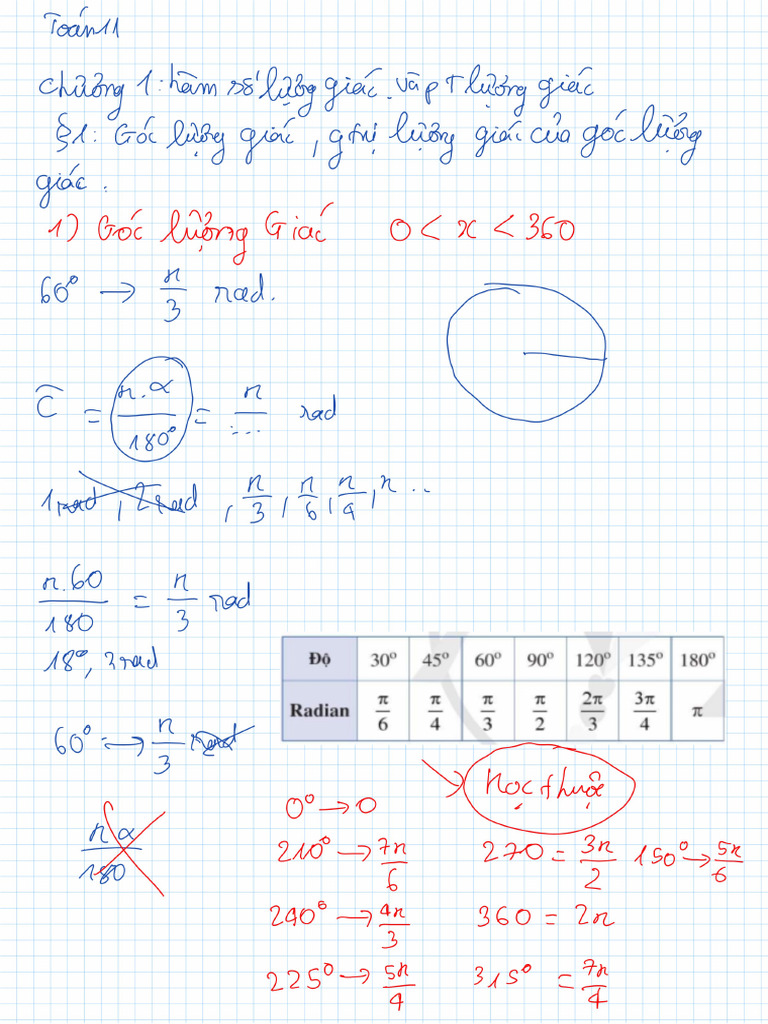 Toán 11
Chương 1: hàm số lượng giác và pt lượng giác
§1: Góc lượng giác, gtrị lượng giác của góc lượng
giác.
1) Góc lượng Giác 0 < x < 360
60° → π/3 rad.
Ĉ = π.α/180° = π/... rad
1 rad, 2 rad, π/3, π/6, π/4, π ...
π.60/180 = π/3 rad
18°, 3 rad
Độ 30° 45° 60° 90° 120° 135° 180°
Radian π/6 π/4 π/3 π/2 2π/3 3π/4 π
60° → π/3 rad
học thuộc
π α/180
0° → 0
210° → 7π/6 270 = 3π/2 150° → 5π/6
240° → 4π/3 360 = 2π
225° → 5π/4 315° = 7π/4